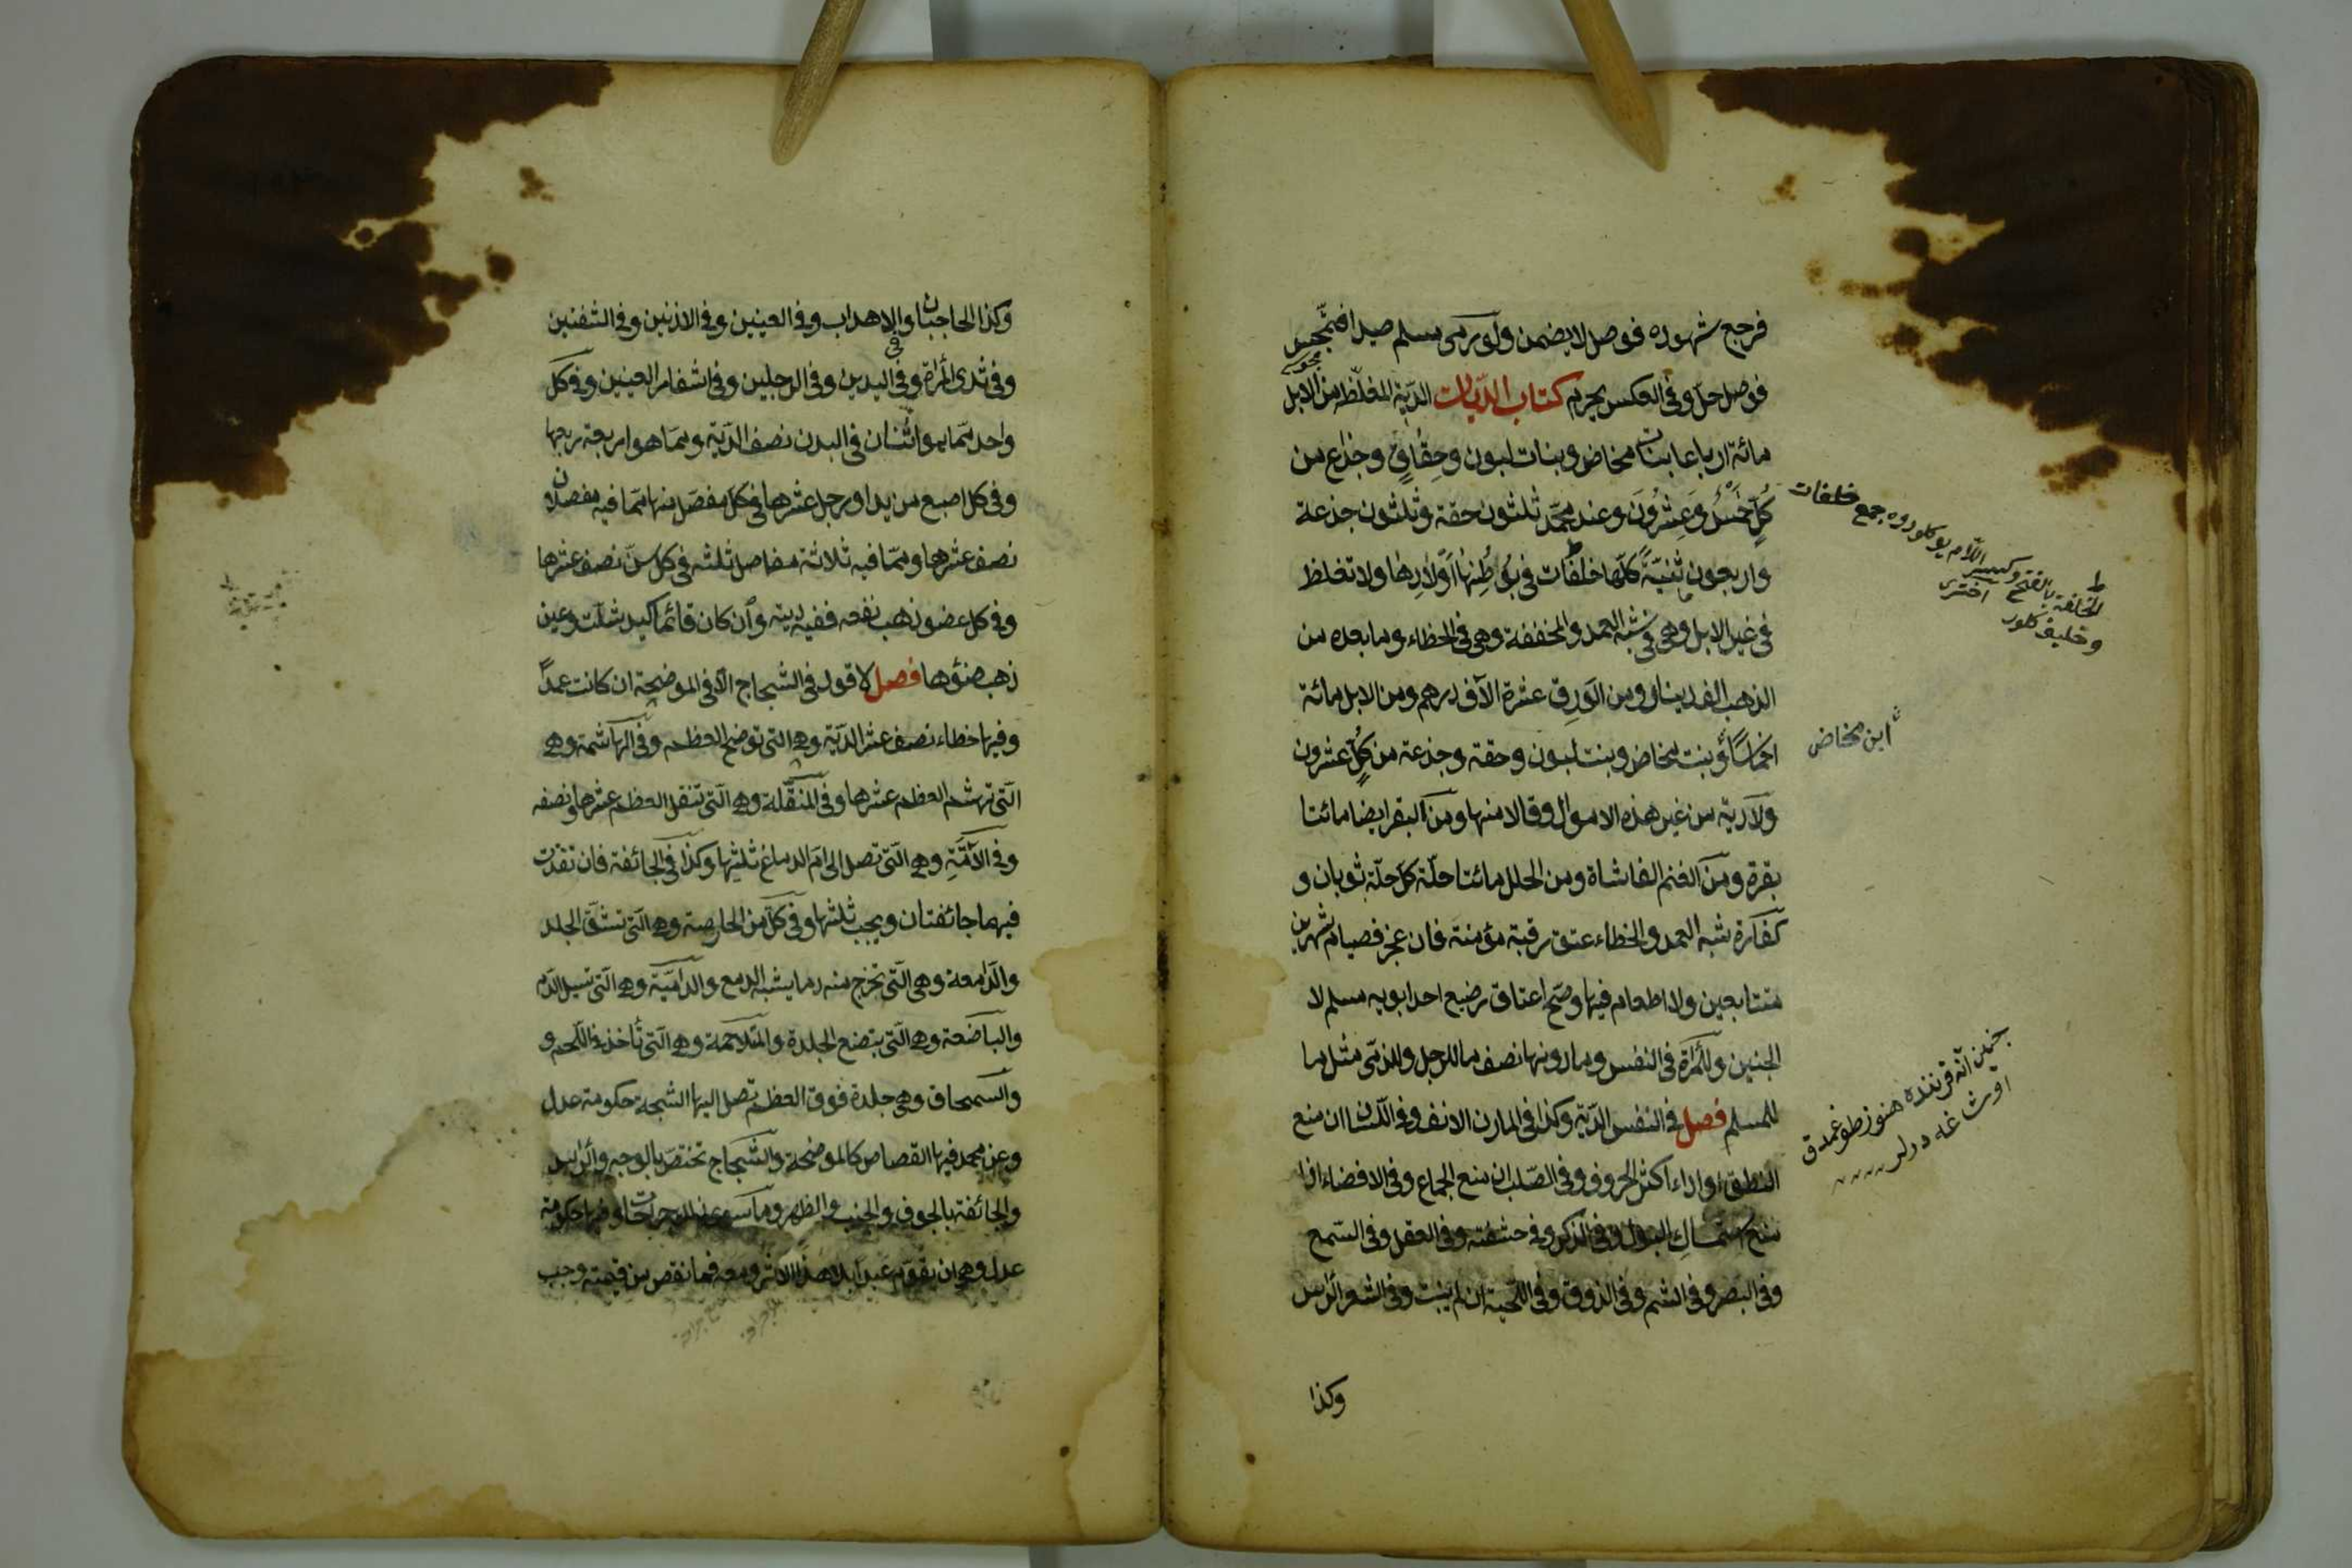 فرجع شهوده فوصل لا يضمن ولو رمى مسلم صيدا فتمجس
فوصل حلّ وفى العكس يحرم كتاب الدّيات الدّية المغلّظه من الابل
مائة ارباعا بنات مخاض وبنات لبون وحِقاقٍ وجذاع من
كُلٍّ خَمْسٌ وَعِشْرُونَ وعند محمّد ثلثون حقة وثلثون جذعة
واربعون ثنيّةً كلّها خلفات فى بُطُونِها اَوْلادِها ولا تغلظ
فى غير الابل وهى فى شبْه العمد والمخففة وهى فى الخطاء وما بعده من
الذهب الف دينار ومن الوَرِق عشرة الآف درهم ومن الابل مائة
اخماسًا وبنت مخاض وبنت لبون وحقة وجذعة من كُلٍّ عشرون
ولا دية من غير هذه الاموال وقالا منها ومن البقر ايضا مائتا
بقرة ومن الغنم الفا شاة ومن الحلل مائتا حلّة كلّ حلّة ثوبان و
كفارة شبه العمد والخطاء عتق رقبة مؤمنة فان عجز فصيام شهرين
متتابعين ولا اطعام فيها وصحّ اعتاق رضيع احد ابويه مسلم لا
الجنين وللمرأة فى النفس وما دونها نصف ما للرجل وللذمّى مثل ما
للمسلم فصل فى النفس الدّية وكذا فى المارن الانف وفى اللّسان ان منع
النطق او اداء اكثر الحروف وفى الصّلب ان منع الجماع وفى الافضاء اذا
منع استمساك البول وفى الذكر وفى حشفته وفى العقل وفى السّمع
وفى البصر وفى الشم وفى الذوق وفى اللّحية ان لم ينبت وفى الشعر الرأس
وكذا
الخلفة بالفتح وكسر اللّام يوكلو دوه جمع خلفات
اختري
ابن مخاض
جنين آنه قرننده هنوز طوغمدق
اوشاغه ديرلر
وكذا الحاجبان والاهداب وفى العينين وفى الاذنين وفى الشفتين
وفى ثدى المرأة وفى اليدين وفى الرجلين وفى اشفار العينين وفى كل
واحد ممّا هو اثنان فى البدن نصف الدّية وممّا هو اربعة ربعها
وفى كل اصبع من يد او رجل عشرها فى كلّ مفصل منها ممّا فيه مفصلان
نصف عشرها وممّا فيه ثلاثة مفاصل ثلثه فى كل سنّ نصف عشرها
وفى كل عضو ذهب نفعه ففيه دية وان كان قائما كيد شلّت وعين
ذهب ضوؤها فصل لا قود فى الشجاج الّا فى الموضحة ان كانت عمداً
وفيها خطاء نصف عشر الدّية وهى التى توضح العظم وفى الهاشمة وهى
الّتى تهشم العظم عشرها وفى المنقّلة وهى الّتى تنقل العظم عشرها ونصفه
وفى الآمّةِ وهى الّتى تصل الى امّ الدماغ ثلثها وكذا فى الجائفة فان نفذت
فيهما جائفتان ويجب ثلثها وفى كلّ من الحارصة وهى الّتى تشقّ الجلد
والدّامعة وهى الّتى تخرج منه دما يشبه الدمع والداميّة وهى الّتى تسيل الدّم
والباضعة وهى الّتى تبضع الجلدة والمتلاحمة وهى الّتى تأخذ فى اللّحم و
والسمحاق وهى جلدة فوق العظم تصل اليها الشجة حكومة عدل
وعن محمد فيها القصاص كالموضحة والشجاج تختصّ بالوجه والرأس
والجائفة بالجوف والجنب والظهر وما سوى ذلك جراحات وفيها حكومة
عدل وهى ان يقوّم عبدا بلا هذا الاثر ومعه فما نقص من قيمته وجب